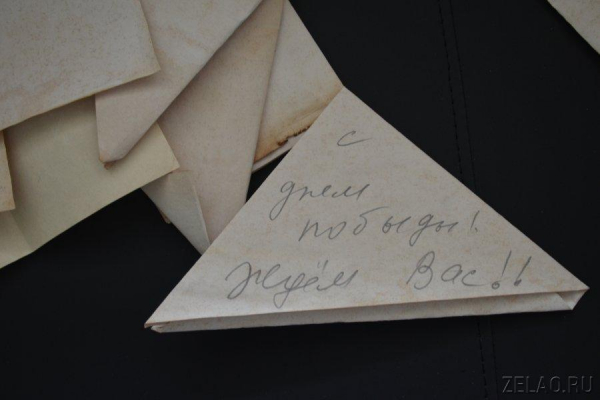 с
днем
побыды!
ждём Вас!!
ZELAO.RU